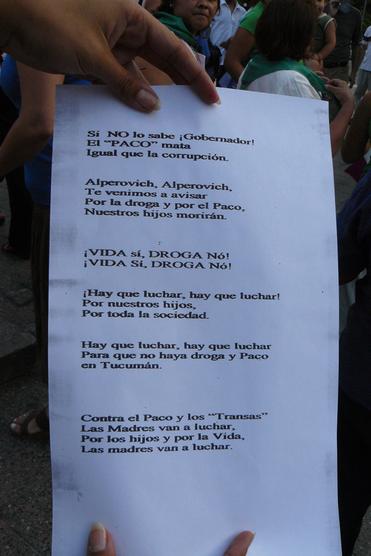 Sí NO lo sabe ¡Gobernador!
El "PACO" mata
Igual que la corrupción.
Alperovich, Alperovich,
Te venimos a avisar
Por la droga y por el Paco,
Nuestros hijos morirán.
¡VIDA sí, DROGA Nó!
¡VIDA Sí, DROGA Nó!
¡Hay que luchar, hay que luchar!
Por nuestros hijos,
Por toda la sociedad.
Hay que luchar, hay que luchar
Para que no haya droga y Paco
en Tucumán.
Contra el Paco y los "Transas"
Las Madres van a luchar,
Por los hijos y por la Vida,
Las madres van a luchar.